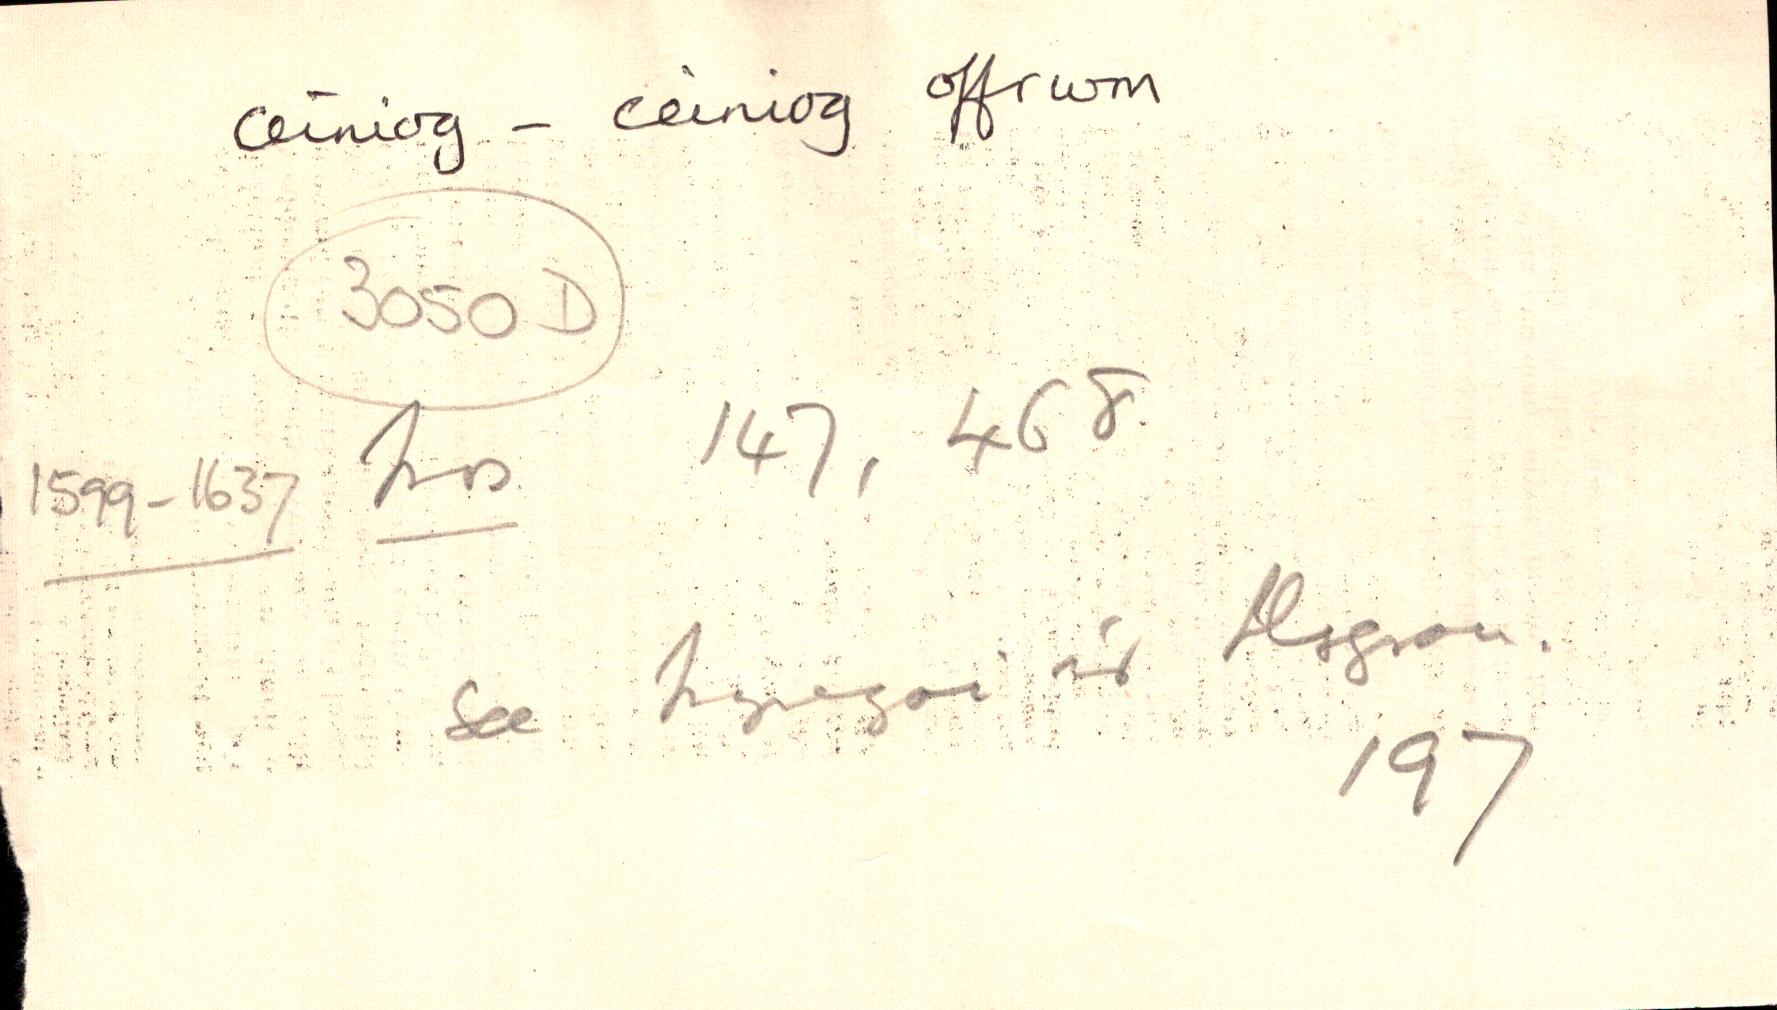 ceiniog - ceiniog offrwm
3050 D
1599-1637 147, 468.
See
197